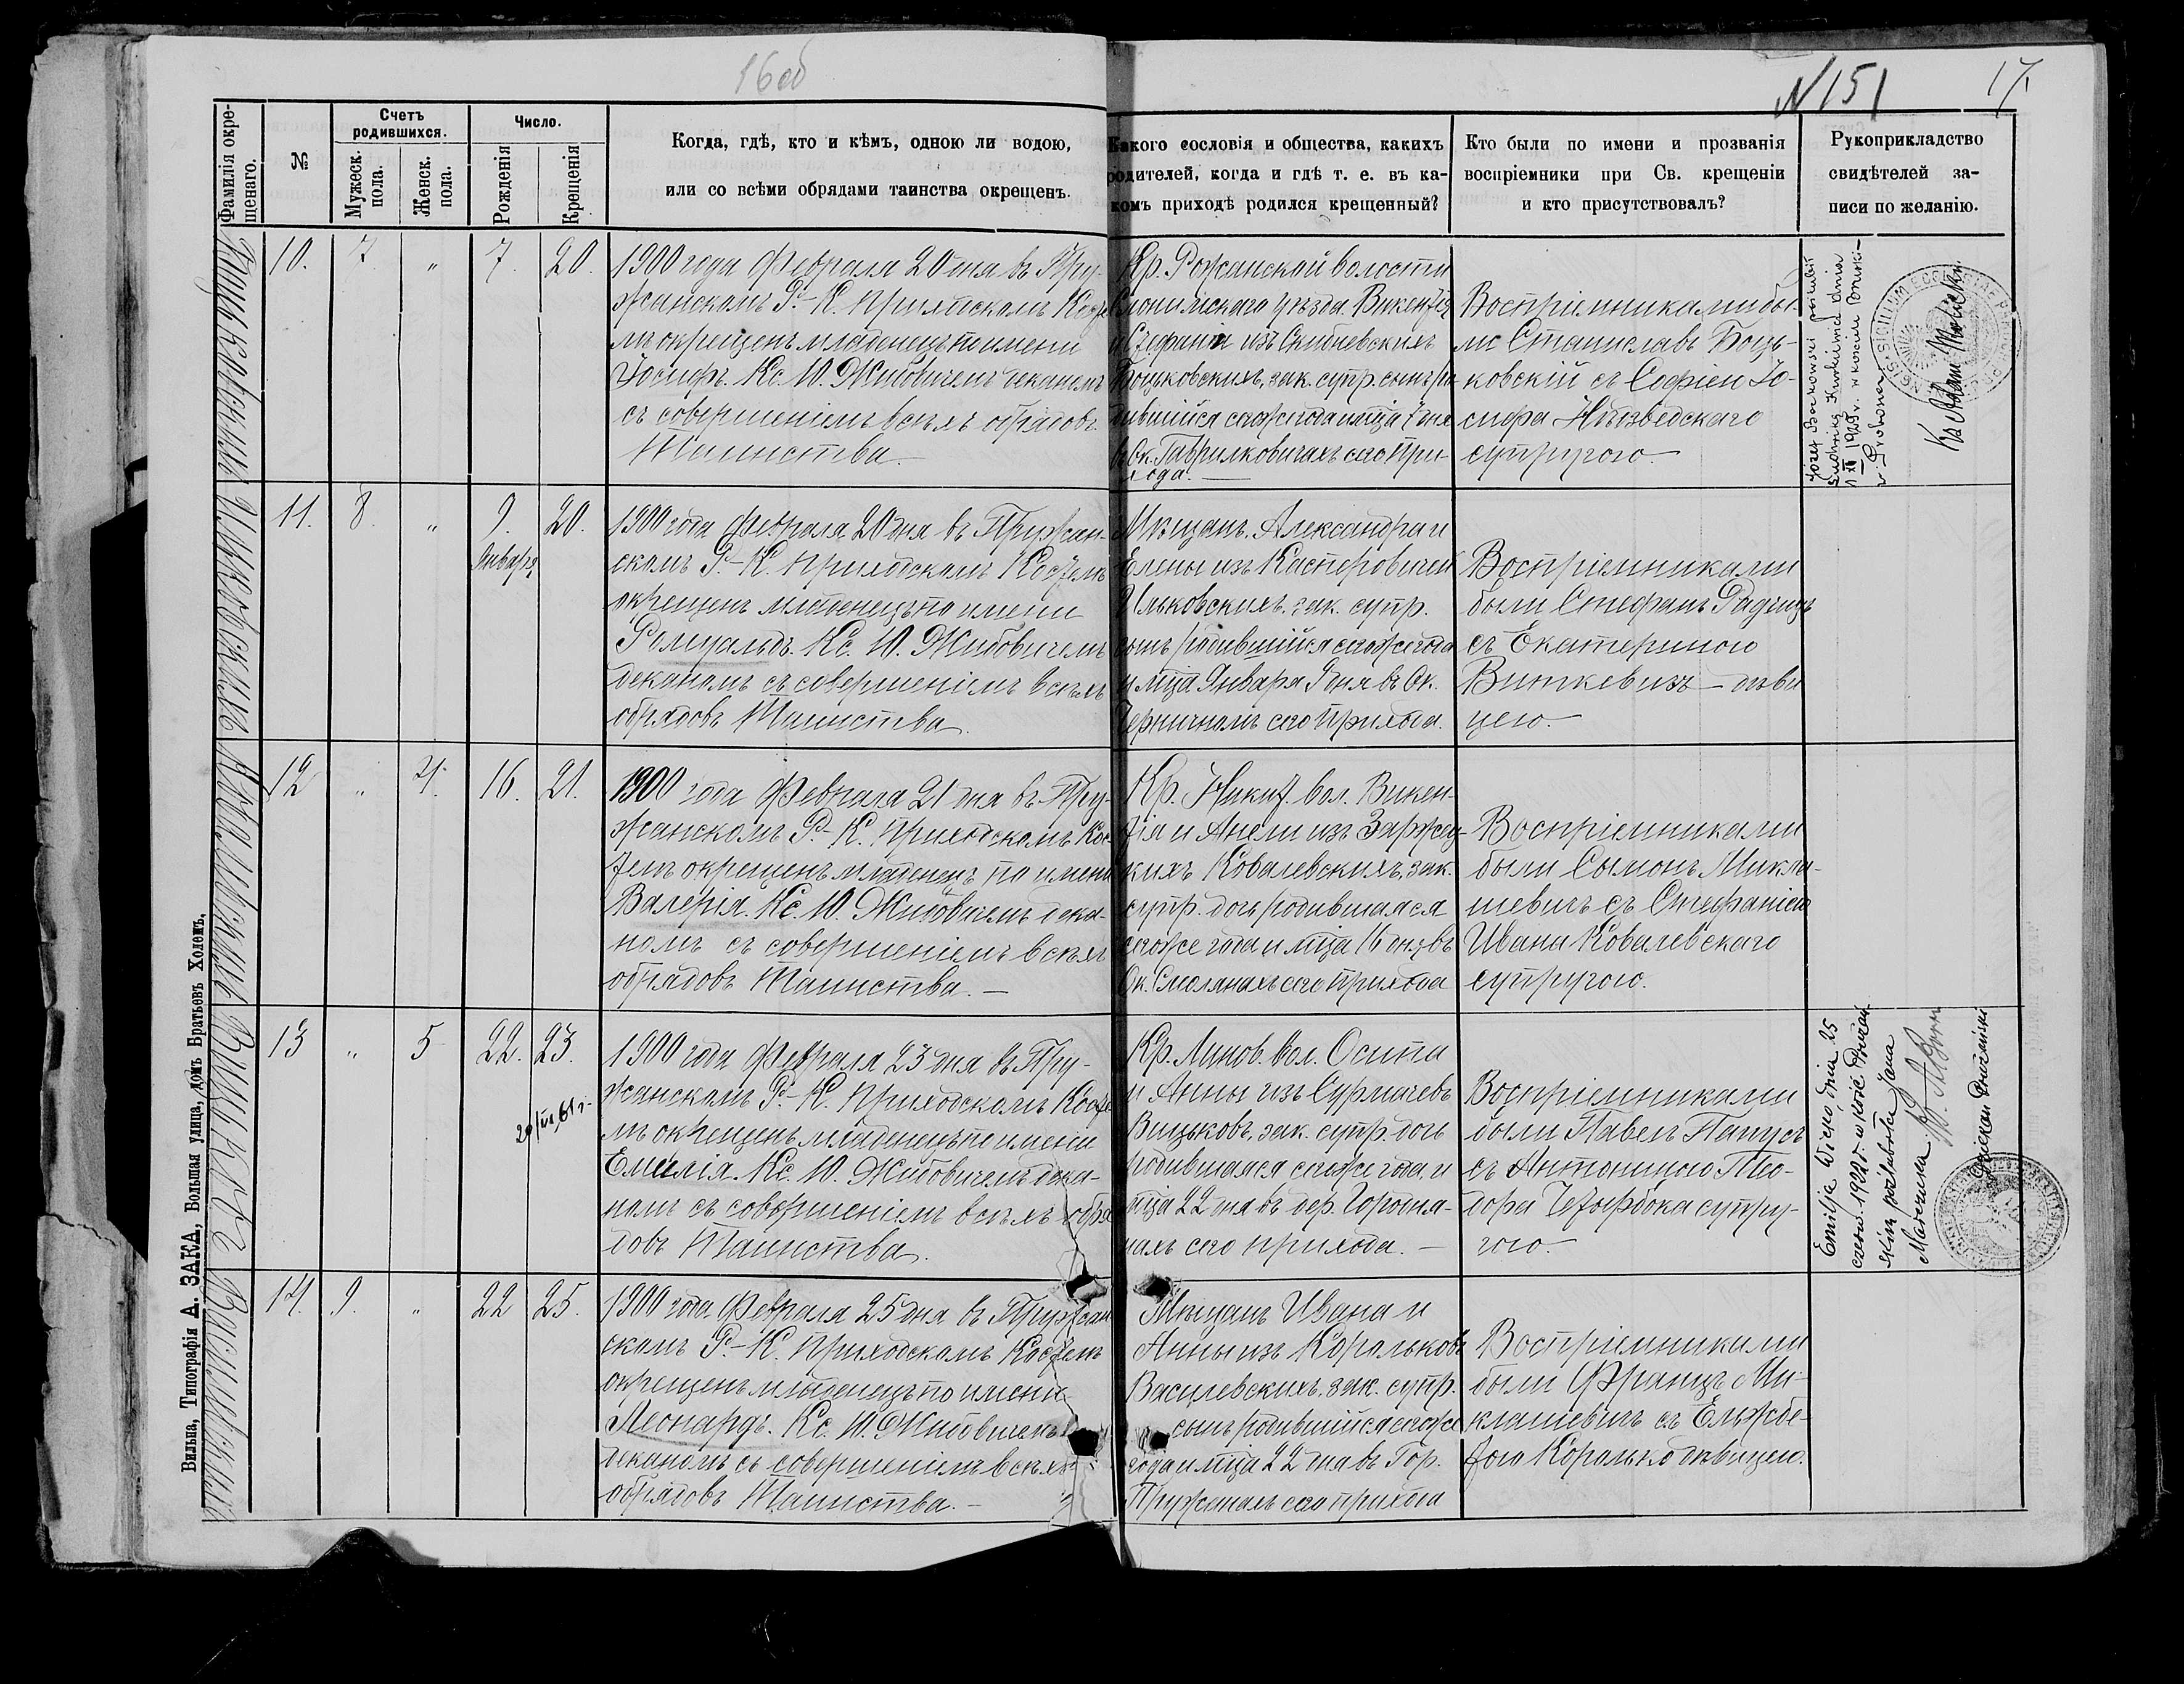 16об
N 151
17
Фамилія окре-
щенаго.
№
Счетъ
родившихся.
Мужеск.
пола.
Женск.
пола.
Число.
Рожденія
Крещенія
Когда, гдѣ, кто и кѣмъ, одною ли водою,
или со всѣми обрядами таинства окрещенъ.
Какого сословія и общества, какихъ
родителей, когда и гдѣ т. е. въ ка-
комъ приходѣ родился крещенный?
Кто были по имени и прозванія
воспріемники при Св. крещеніи
и кто присутствовалъ?
Рукоприкладство
свидѣтелей за-
писи по желанію.
Боцьковскихъ
10. 7 " 7. 20.
1900 года Февраля 20 дня въ Пру-
жанскомъ Р.-К. Приходскомъ Косте-
лѣ окрещенъ младенецъ по имени
Іосифъ. Кс. Ю. Житовичемъ деканомъ
съ совершеніемъ всѣхъ обрядовъ
Таинства.
Кр. Рожанской волости
Слонимскаго уѣзда Викентія
и Стефаніи изъ Скибневскихъ
Боцьковскихъ, зак. супр. сынъ ро-
дившійся сегоже года и мѣца 7 дня
въ Ок. Гаврилковичахъ сего При-
хода.
Воспріемниками бы-
ли Станиславъ Боць-
ковскій съ Софіею Іо-
сифа Нѣзвѣдскаго
супругою.
Józef Boćkowski poślubił
Ludwikę dnia
1 XI 1925 r. w kościele
w Grodnie
Ильковскихъ
11. 8. " 9. 20.
Января
1900 года Февраля 20 дня въ Пружан-
скомъ Р.-К. Приходскомъ Костелѣ
окрещенъ младенецъ по имени
Ромуальдъ. Кс. Ю. Житовичемъ
деканомъ съ совершеніемъ всѣхъ
обрядовъ Таинства.
Мѣщанъ. Александра и
Елены изъ Касперовичей
Ильковскихъ. зак. супр.
сынъ родившійся сегоже года
и мѣца Января 9 дня въ Ок.
сего Прихода.
Воспріемниками
были Стефанъ
съ Екатериною
Винкевичъ — дѣви
цею.
Ковалевскихъ
12 " 4. 16. 21.
1900 года Февраля 21 дня въ Пру-
жанскомъ Р.-К. Приходскомъ Кос-
телѣ окрещенъ младенецъ по имени
Валерія. Кс. Ю. Житовичемъ дека-
номъ съ совершеніемъ всѣхъ
обрядовъ Таинства. —
Кр. вол. Викен-
тія и Анели изъ Заржец-
кихъ Ковалевскихъ, зак.
супр. дочь родившаяся
сегоже года и мѣца 16 дня въ
Ок. Смолянахъ сего прихода
Воспріемниками
были Сымонъ Микла-
шевичъ съ Стефаніею
Ивана Ковалевскаго
супругою.
Вицьковъ
13 " 5 22. 23.
1900 года Февраля 23 дня въ Пру-
жанскомъ Р.-К. Приходскомъ Косте-
лѣ окрещенъ младенецъ по имени
Емилія. Кс. Ю. Житовичемъ дека-
номъ съ совершеніемъ всѣхъ обря-
довъ Таинства.
Кр. Линов. вол. Осипа
и Анны изъ Сурмачевъ
Вицьковъ, зак. супр. дочь
родившаяся сегоже года и
мѣца 22 дня въ дер. Городня-
нахъ сего прихода. —
Воспріемниками
были Павелъ Папусъ
съ Антониною Тео-
дора супру-
гою.
Emilja Wićko, dnia 25
1922 r. w kośc. Prużań-
skim zaślubiła Jana
Dziekan Prużański
Василевскихъ
14. 9. " 22 25.
1900 года Февраля 25 дня въ Пружан
скомъ Р.-К. Приходскомъ Костелѣ
окрещенъ младенецъ по имени
Леонардъ. Кс. Ю. Житовичемъ
деканомъ съ совершеніемъ всѣхъ
обрядовъ Таинства. —
Мѣщанъ Ивана и
Анны изъ Корольковъ
Василевскихъ, зак. супр.
сынъ родившійся сегоже
года и мѣца 22 дня въ Гор.
Пружанахъ сего прихода
Воспріемниками
были Францъ Ми-
клашевичъ съ Ельжбе-
тою Королько дѣвицею.
Вильна, Типографія А. ЗАКА, Большая улица, домъ Братьевъ Холемъ.